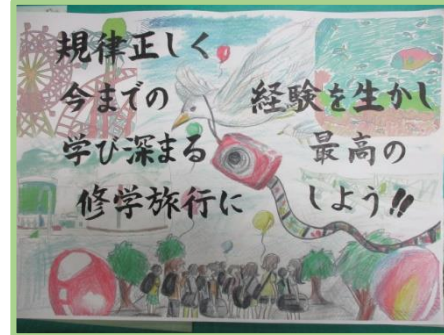 規律正しく
今までの 経験を生かし
学び深まる 最高の
修学旅行に しよう!!